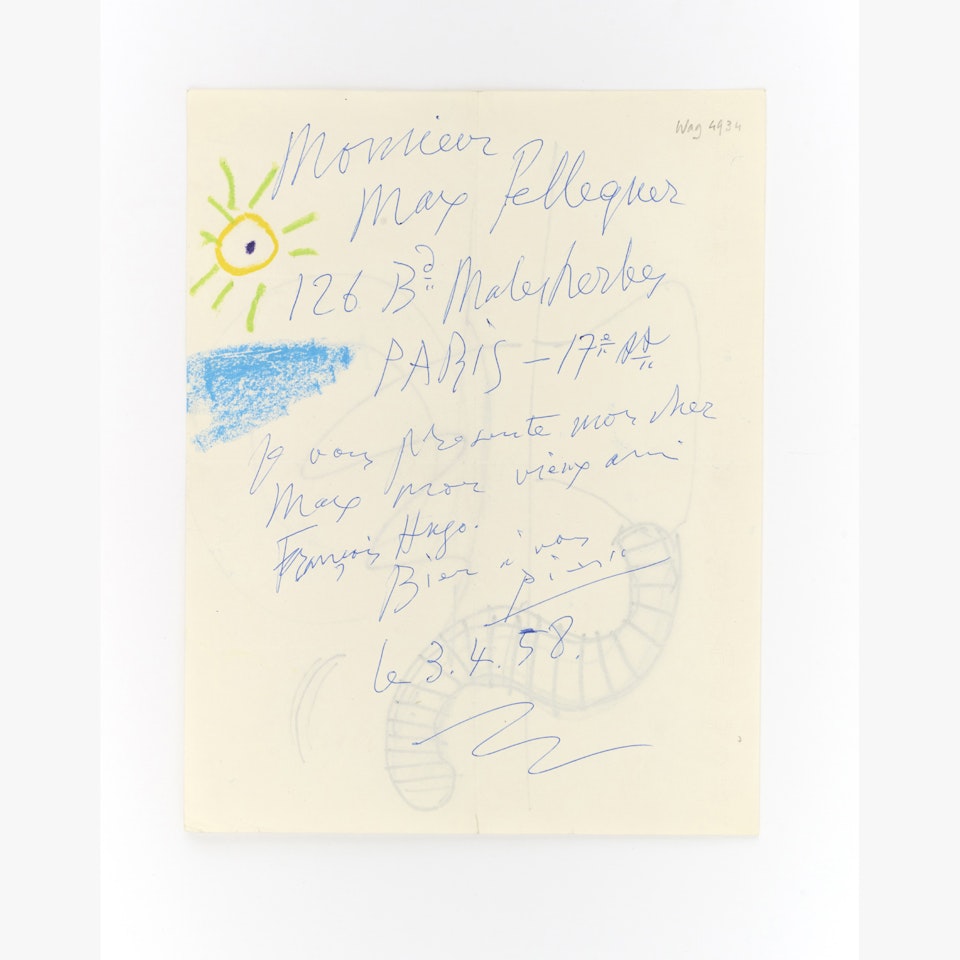 Wag 4934
Monsieur
Max Pellequer
126 Bd Malesherbes
PARIS – 17e
Je vous présente mon cher
Max mon vieux ami
François Hugo.
Bien à vous
Picasso
le 3.4.58.